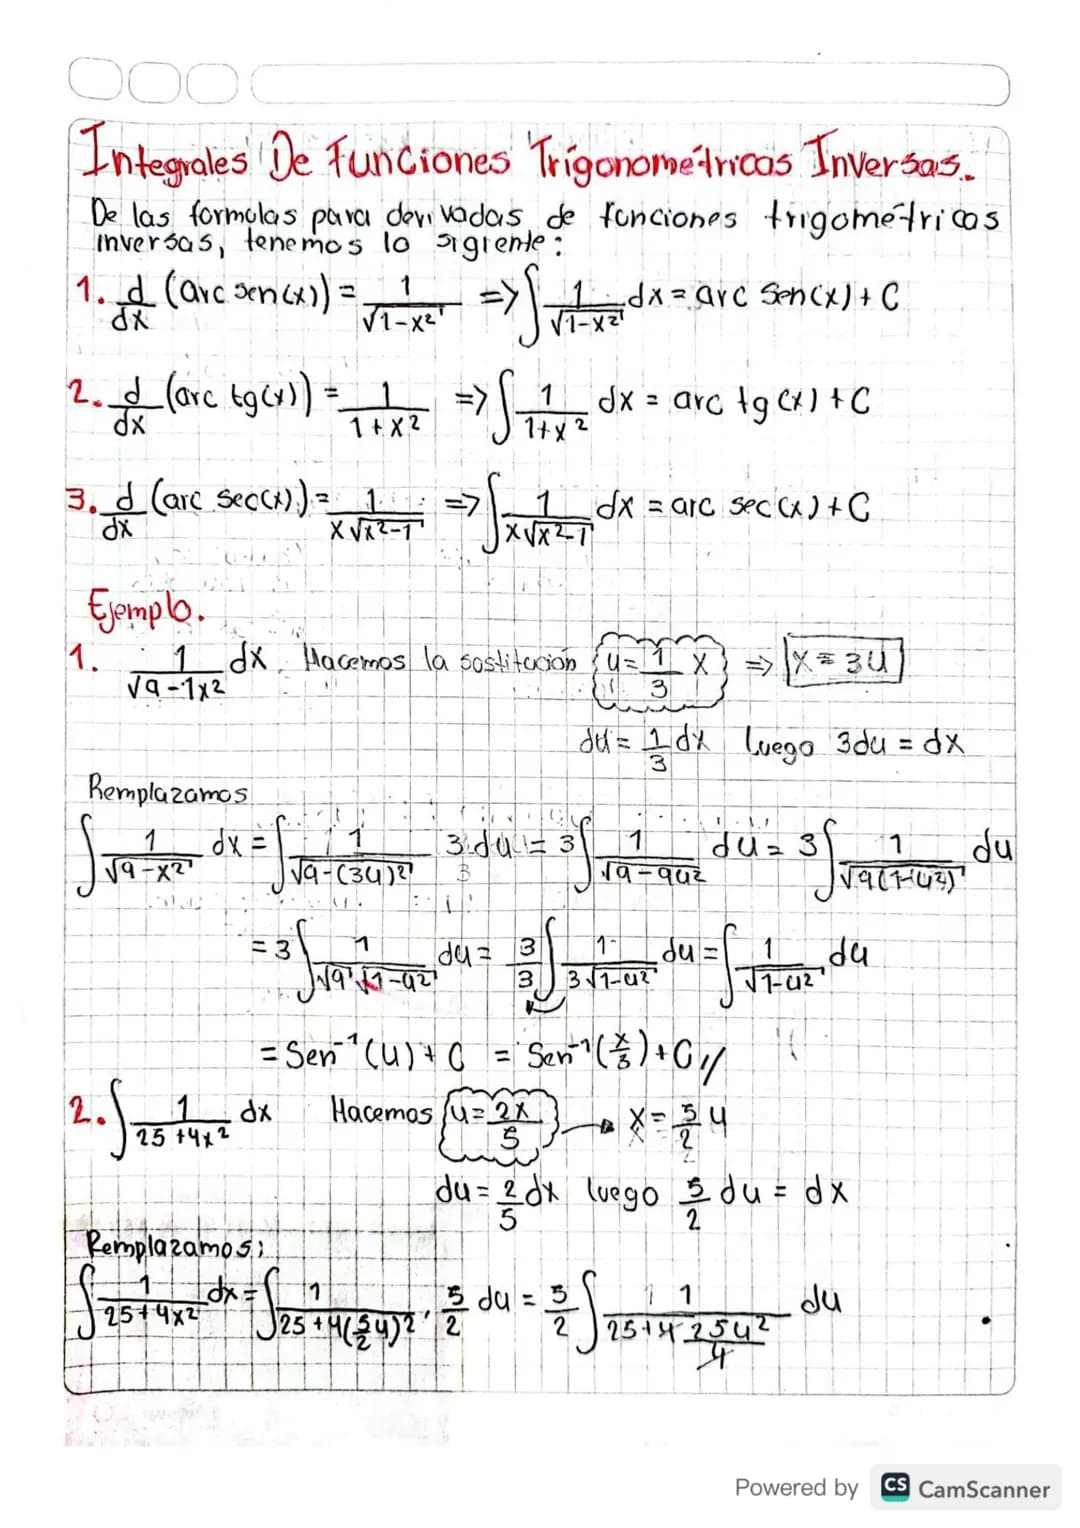 Integrales De Funciones Trigonométricas Inversas.
De las formulas para derivadas de funciones trigométricas
inversas, tenemos lo sigiente:
1. d/dx (arc sen(x)) = 1/√(1-x²) => ∫ 1/√(1-x²) dx = arc Sen(x) + C
2. d/dx (arc tg(x)) = 1/(1+x²) => ∫ 1/(1+x²) dx = arc tg(x) + C
3. d/dx (arc sec(x)) = 1/(x√(x²-1)) => ∫ 1/(x√(x²-1)) dx = arc sec(x) + C
Ejemplo.
1. 1/√(9-1x²) dx. Hacemos la sostitución u = 1/3 x => x = 3u
du = 1/3 dx luego 3du = dx
Remplazamos
∫ 1/√(9-x²) dx = ∫ 1/√(9-(3u)²) 3.du = 3∫ 1/√(9-9u²) du = 3∫ 1/√(9(1-u²)) du
= 3∫ 1/(√9 √(1-u²)) du = 3/3 ∫ 1/(3√(1-u²)) du = ∫ 1/√(1-u²) du
= Sen⁻¹(u) + C = Sen⁻¹(x/3) + C //
2. ∫ 1/(25+4x²) dx Hacemos u = 2x/5 → x = 5/2 u
du = 2/5 dx luego 5/2 du = dx
Remplazamos:
∫ 1/(25+4x²) dx = ∫ 1/(25+4(5/2 u)²) · 5/2 du = 5/2 ∫ 1/(25+4 25u²/4) du
Powered by CS CamScanner